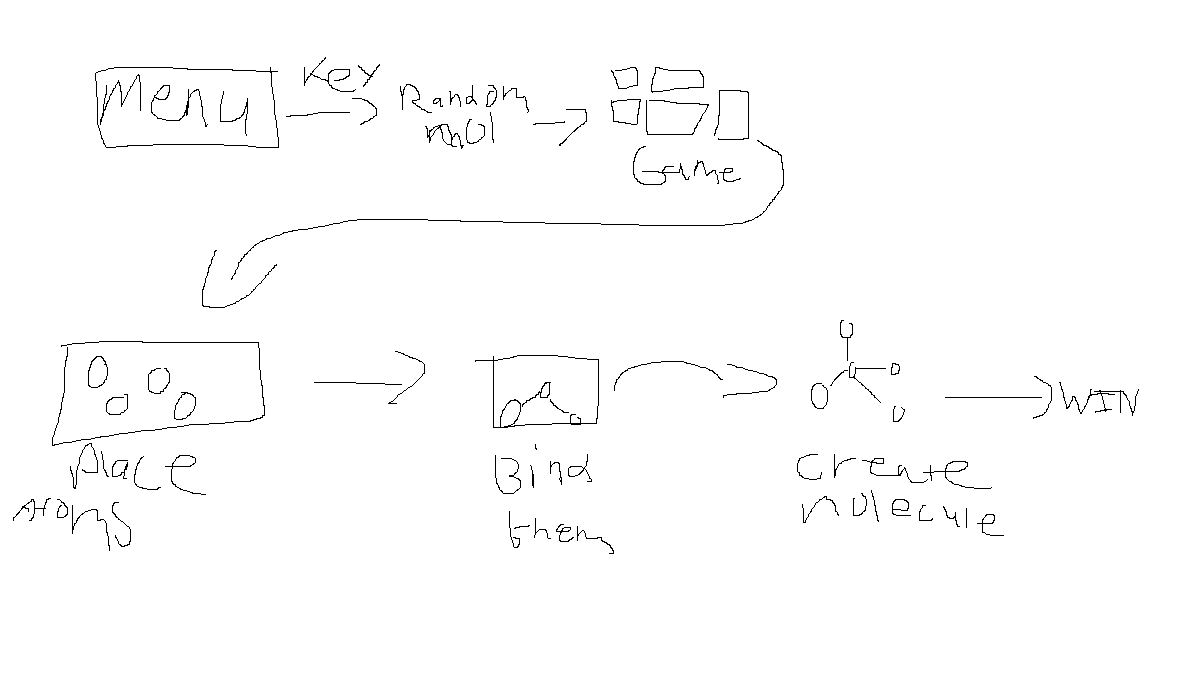 Menu
Key
Random
mol
Game
Place
Atoms
Bind
them
create
molecule
WIN